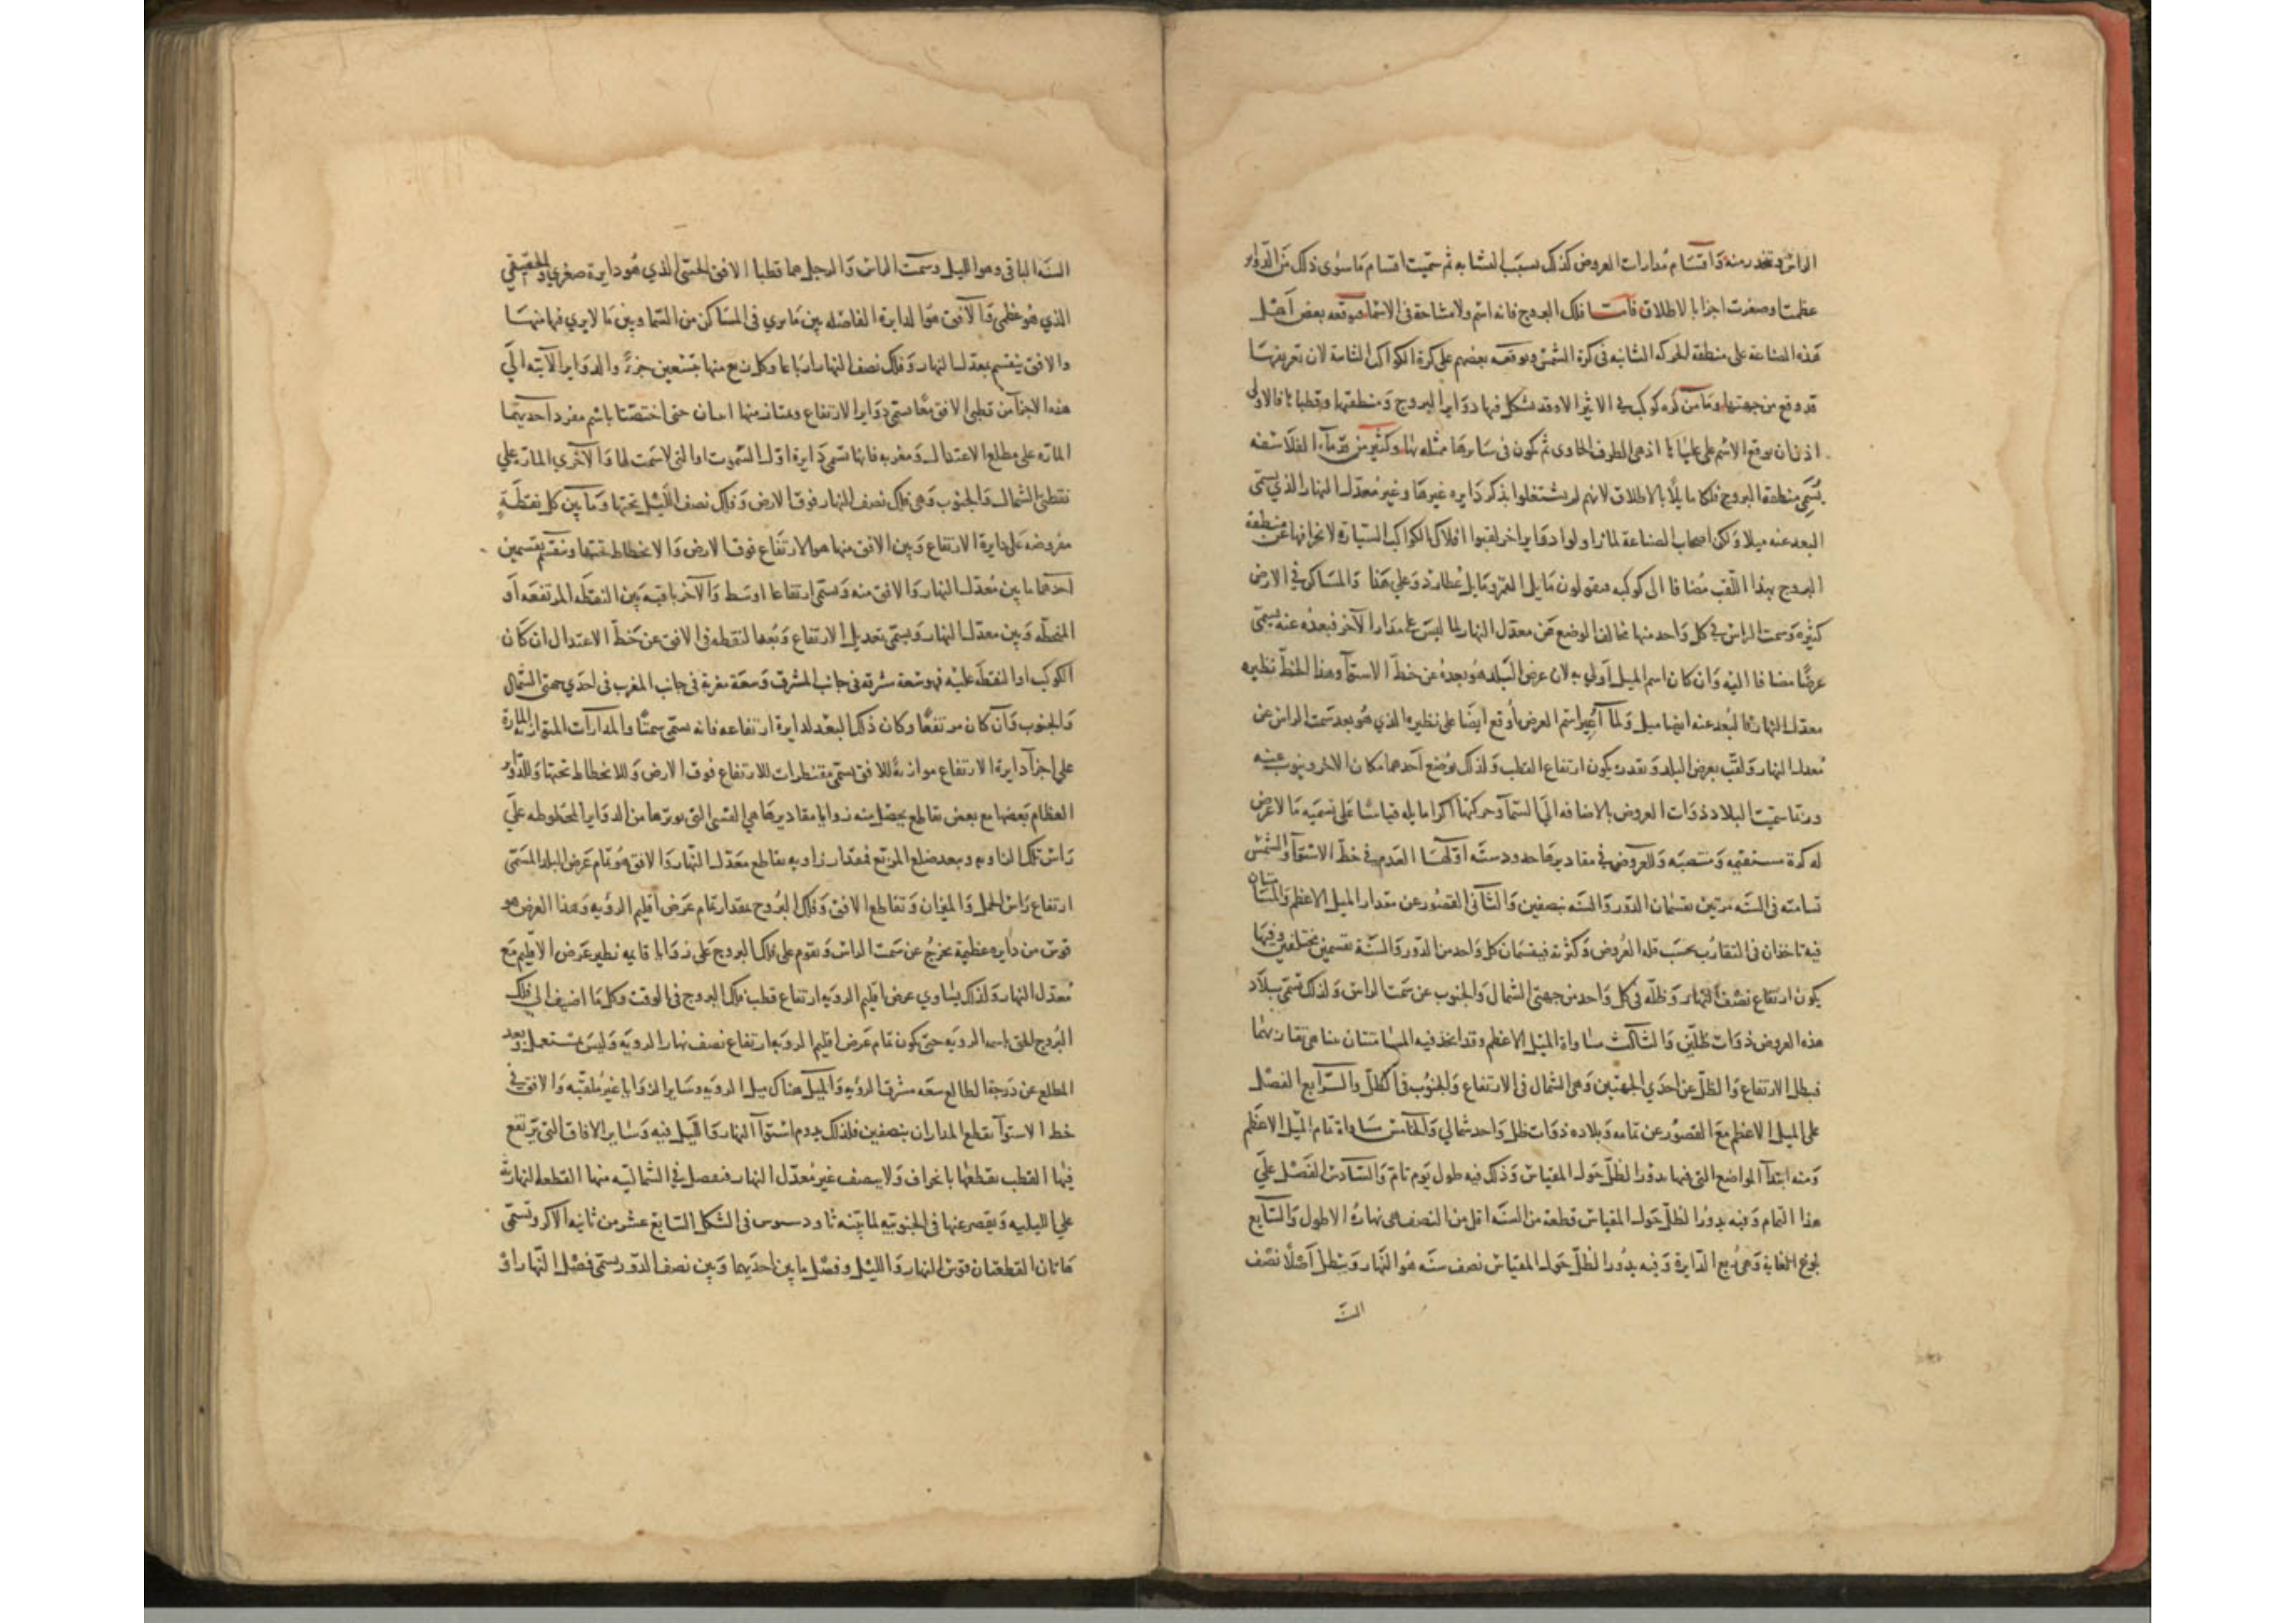 الراس وتنحدر منه واقسام مدارات العروض كذلك بسبب التشابه ثم سميت اقسام ما سوى ذلك من الدواير
عظمت او صغرت اجزا بالاطلاق فامــا فلك البروج فانه اسم ولا مشاحة في الاسما بعض اهل
هذه الصناعة على منطقة الحركه الثانيه في كرة الشمس ويوقعه بعضهم على كرة الكواكب الثامنة لان تعريفها
قد وقع من جهتها وما من كره كوكب في الاثير الا وقد تشكل فيها دواير البروج ومنطقتها وقطباها فالاولى
اذن ان يوقع الاسم على علياها اذ هي الطرف الحاوى ثم تكون في سايرها ممثله بها وكثير من قدماء الفلاسفه
يسمى منطقة البروج فلكا مايلا بالاطلاق لانهم لم يشتغلوا بذكر دايره غيرها وغير معدل النهار الذي يسمى
البعد عنه ميلا ولكن اصحاب الصناعة لما زاولوا دواير اخر لقبوا افلاك الكواكب السيارة لانحرافها عن منطقة
البروج بهذا اللقب مضافا الى كوكبه فيقولون مايل القمر ومايل عطارد وعلى هذا والمساكن في الارض
كثيره وسمت الراس في كل واحد منها مخالف الوضع من معدل النهار لما ليس على مدار الآخر فبعده عنه يسمى
عرضا مضافا اليه وان كان اسم الميل اولى به لان عرض البلد هو بعده عن خط الاستوآ وهذا الخط نظيره
معدل النهار فالبعد عنه ايضا ميل ولما اسم العرض اوقع ايضا على نظيره الذي هو بعد سمت الراس عن
معدل النهار ولقب بعرض البلد وبقدره يكون ارتفاع القطب ولذلك يوضع احدهما مكان الاخر وينوب عنه
وربما سميت البلاد ذوات العروض بالاضافه الى السما وحركتها اكرا مايله قياسا على تسميه ما لا عرض
له كرة مستقيمه ومنتصبه وللعروض في مقاديرها حدود سته اولها العدم في خط الاستوآ والشمس
تسامته في السنه مرتين تقسمان الدور والسنه بنصفين والثاني القصور عن مقدار الميل الاعظم والمسامتتان
فيه تاخذان في التقارب بحسب قله العروض وكثرته فيقسمان كل واحد من الدور والسنة بقسمين مختلفين وفيها
يكون ارتفاع نصف النهار وظله في كل واحد من جهتي الشمال والجنوب عن سمت الراس ولذلك تسمى بلاد
هذه العروض ذوات ظلين والثالث مساواة الميل الاعظم وقد اتحد فيه المسامتتان بتناهي تقاربهما
فبطل الارتفاع والظل عن احدي الجهتين وهي الشمال في الارتفاع والجنوب في الظل والرابع الفضل
على الميل الاعظم مع القصور عن تمامه وبلاده ذوات ظل واحد شمالي والخامس مساواة تمام الميل الاعظم
ومنه ابتدآ المواضع التي فيها يدور الظل حول المقياس وذلك فيه طول يوم تام والسادس الفضل على
هذا التمام وفيه يدور الظل حول المقياس قطعة من السنه اقل من النصف هي نهاره الاطول والسابع
بلوغ الغاية وهي ربع الدايرة وفيه يدور الظل حول المقياس نصف سنه هو النهار ويبطل اصلا نصف
السنه
السنه الباقي وهو الليل وسمت الراس والرجل هما قطبا الافق الحسي الذي هو دايرة صغري والحقيقي
الذي هو عظمى والآفق هو الدايرة الفاصله بين ما يري في المساكن من السما وبين ما لا يري فيها منها
والافق ينقسم بمعدل النهار وفلك نصف النهار ارباعا وكل ربع منها بتسعين جزءً والدواير الآتيه الى
هذه الاجزآ من قطبي الافق معا تسمى دواير الارتفاع ويمتاز منها اثنان حتى اختصتا باسم مفرد احديهما
المارّه على مطلع الاعتدال ومغربه فانها تسمى دايرة اول السموت او التي لا سمت لها والاخري المارّة على
نقطتي الشمال والجنوب وهي فلك نصف النهار فوق الارض وفلك نصف الليل تحتها وما بين كل نقطة
مفروضه على دايرة الارتفاع وبين الافق منها هو الارتفاع فوق الارض والانحطاط تحتها وينقسم بقسمين
احدهما ما بين معدل النهار والافق منه ويسمى ارتفاعا اوسط والآخر باقيه بين النقطه المرتفعه او
المنحطه وبين معدل النهار ويسمى تعديل الارتفاع وبعد النقطه في الافق عن خط الاعتدال ان كان
الكوكب او النقطه عليه فهو سعة مشرقه في جانب المشرق وسعة مغربه في جانب المغرب في احدي جهتي الشمال
والجنوب وان كان مرتفعا وكان ذلك البعد لدايرة ارتفاعه فانه يسمى سمتا والمدارات المتوازية المارة
على اجزآ دايرة الارتفاع موازية للافق تسمى مقنطرات للارتفاع فوق الارض وللانحطاط تحتها وللدواير
العظام بعضها مع بعض تقاطع يحصل منه زوايا مقاديرها هي القسي التي يوترها من الدواير المخطوطه على
راس تلك الزاويه وببعد ضلع المربع فمقدار زاويه تقاطع معدل النهار والافق هو تمام عرض البلد المسمى
ارتفاع راس الحمل والميزان وتقاطع الافق وفلك البروج بمقدار تمام عرض اقليم الرؤيه وهذا العرض هو
قوس من دايره عظيمة تخرج عن سمت الراس وتقوم على فلك البروج على زوايا قايمه نظير عرض الاقليم مع
معدل النهار ولذلك يساوي عرض اقليم الرويه ارتفاع قطب فلك البروج في الوقت وكل ما اضيف الى فلك
البروج لقب باسم الرويه حتى يكون تمام عرض اقليم الرويه ارتفاع نصف نهار الرويه وليس بمستعمل وبعد
المطلع عن درجة الطالع سعه مشرق الرؤيه والميل هناك ميل الرويه وساير الزوايا غير ملقبه والافق في
خط الاستوآ يقطع المدارات بنصفين فلذلك يدوم استوآ النهار والليل فيه وساير الافاق التي يرتفع
فيها القطب يقطعها بانحراف ولا ينصف غير معدل النهار فتفضل في الشماليه منها القطعه النهاريه
على الليليه ويقصر عنها في الجنوبيه لما بينه ثاودسيوس في الشكل السابع عشر من ثانيه الاكر وتسمى
هاتان القطعتان قوس النهار والليل وفضل ما بين احديهما وبين نصف الدور يسمى فضل النهار او